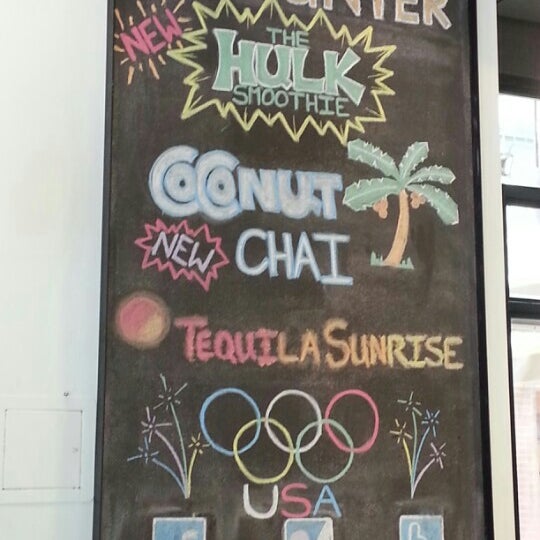 NEW
THE
HULK
SMOOTHIE
COCONUT
NEW CHAI
TEQUILA SUNRISE
USA